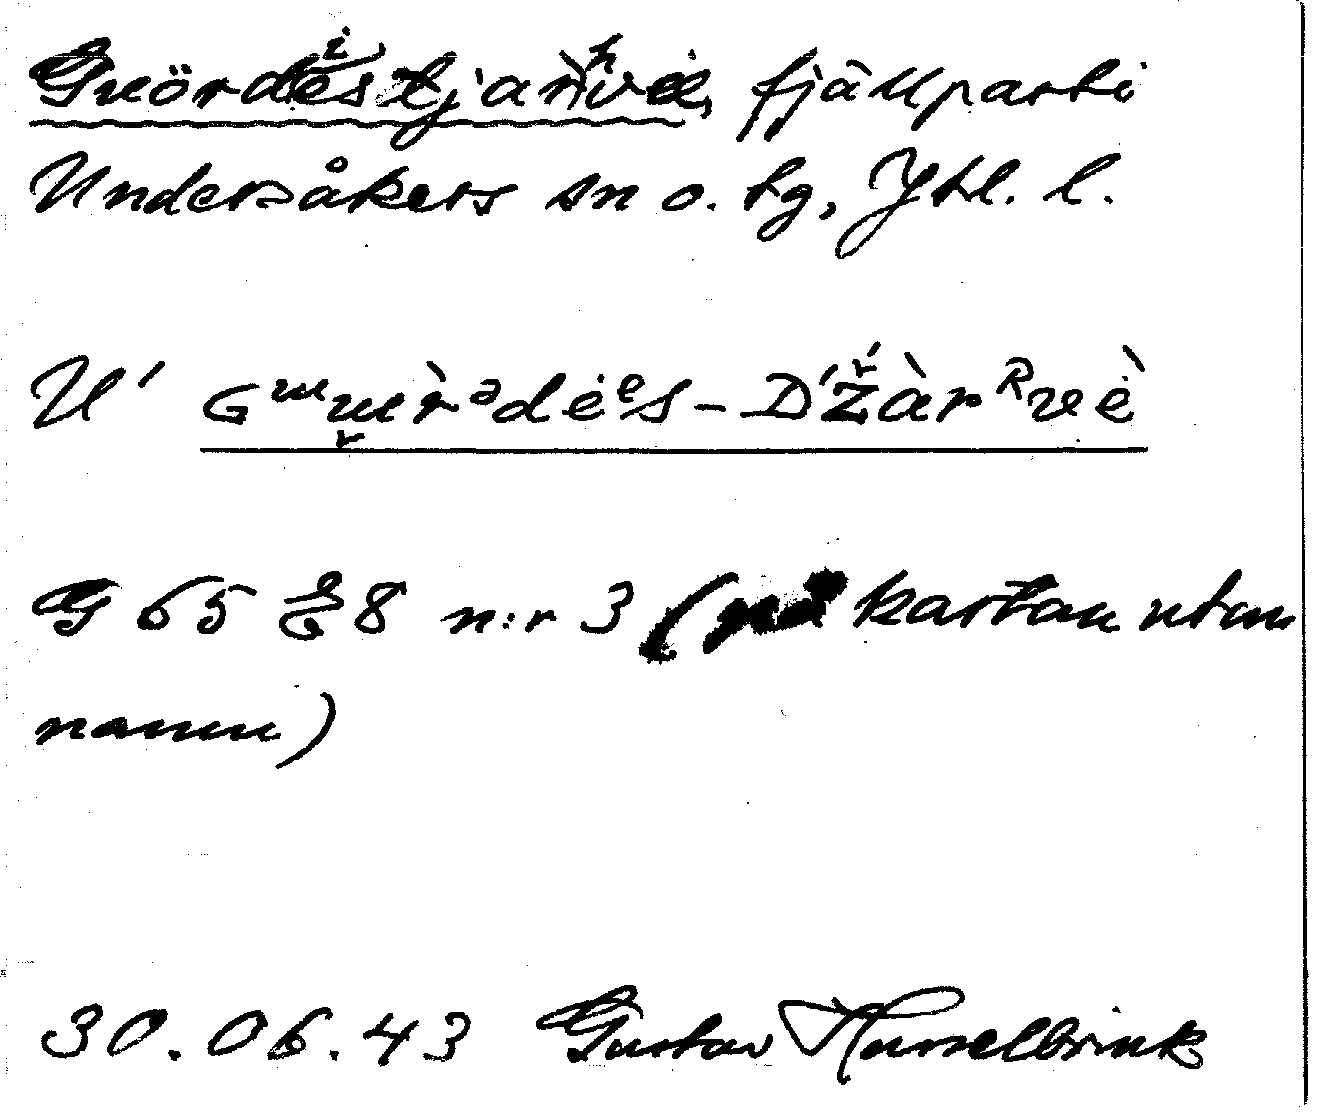 Guördestjarve, fjällparti
Undersåkers sn o. tg, Jtl. l.
U'
G 65 8 n:r 3 (på kartan utan
namn)
30.06.43 Gustav Hasselbrink